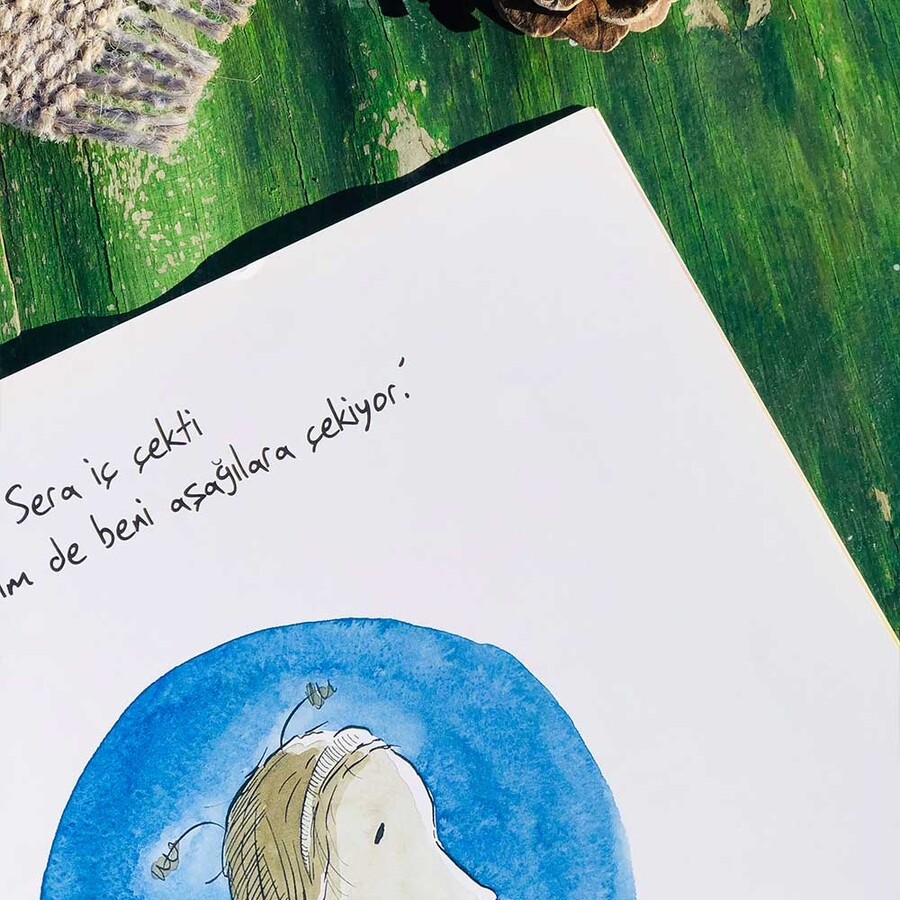 Sera iç çekti
de beni aşağılara çekiyor.'